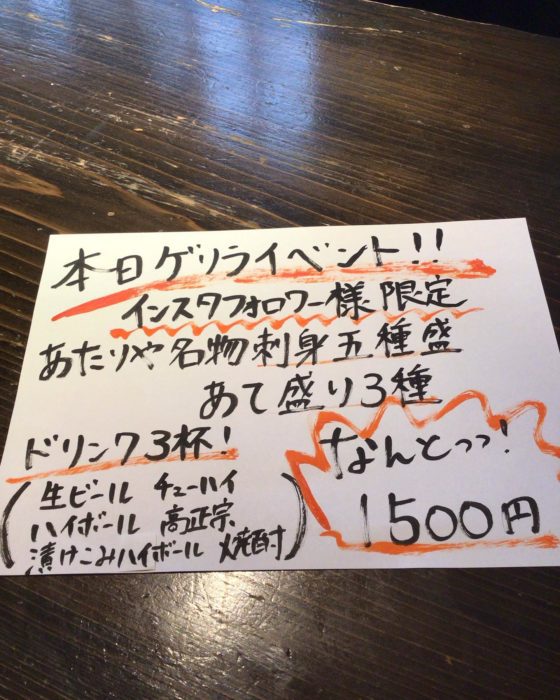 本日ゲリライベント!!
インスタフォロワー様限定
あたりや名物刺身五種盛
あて盛り3種
ドリンク3杯!
(生ビール チューハイ
ハイボール 高正宗
漬けこみハイボール 焼酎)
なんとっっ!
1500円